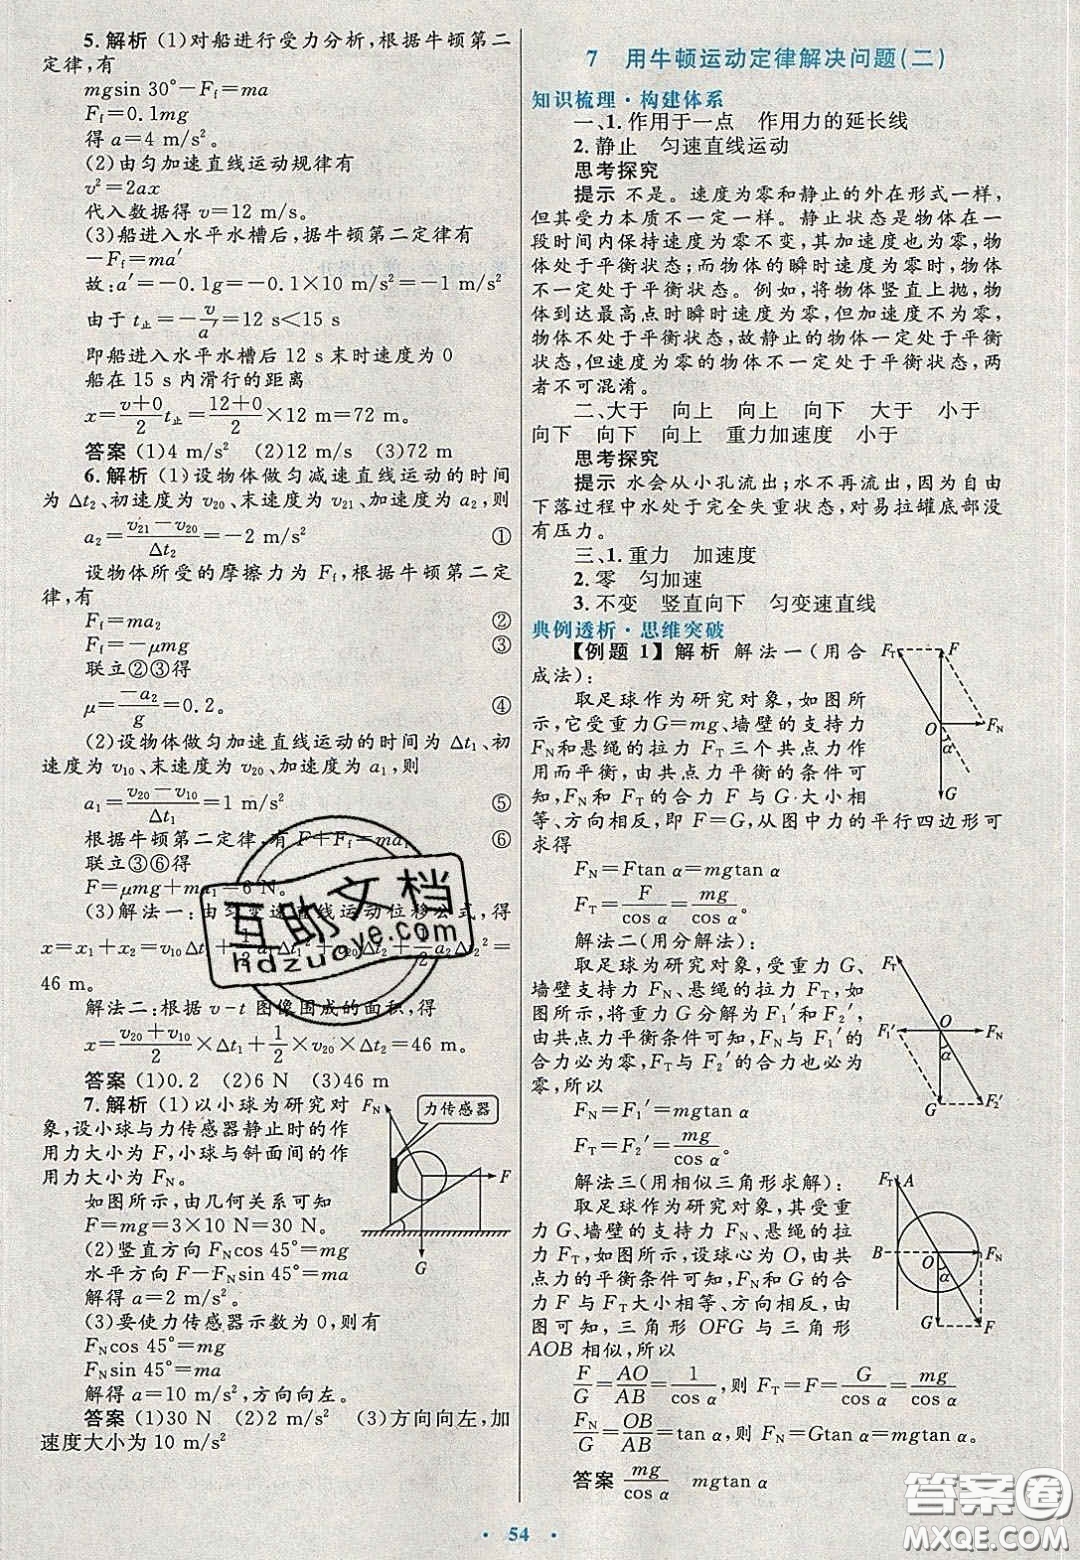 5. 解析 (1)对船进行受力分析,根据牛顿第二
定律,有
mgsin 30°-Ff=ma
Ff=0.1mg
得 a=4 m/s²。
(2)由匀加速直线运动规律有
v²=2ax
代入数据得 v=12 m/s。
(3)船进入水平水槽后,据牛顿第二定律有
-Ff=ma′
故:a′=-0.1g=-0.1×10 m/s²=-1 m/s²
由于 t止=-v/a′=12 s<15 s
即船进入水平水槽后 12 s 末时速度为 0
船在 15 s 内滑行的距离
x=(v+0)/2 t止=(12+0)/2×12 m=72 m。
答案 (1)4 m/s² (2)12 m/s (3)72 m
6. 解析 (1)设物体做匀减速直线运动的时间
为 Δt₂、初速度为 v₂₀、末速度为 v₂₁、加速度为 a₂,则
a₂=(v₂₁-v₂₀)/Δt₂=-2 m/s² ①
设物体所受的摩擦力为 Ff,根据牛顿第二定
律,有
Ff=ma₂ ②
Ff=-μmg ③
联立②③得
μ=-a₂/g=0.2。 ④
(2)设物体做匀加速直线运动的时间为 Δt₁、初
速度为 v₁₀、末速度为 v₂₀、加速度为 a₁,则
a₁=(v₂₀-v₁₀)/Δt₁=1 m/s² ⑤
根据牛顿第二定律,有 F+Ff=ma₁ ⑥
联立③⑥得
F=μmg+ma₁=6 N。
(3)解法一:由匀变速直线运动位移公式,得
x=x₁+x₂=v₁₀Δt₁+1/2a₁Δt₁²+v₂₀Δt₂+1/2a₂Δt₂²=
46 m。
解法二:根据 v-t 图像围成的面积,得
x=(v₂₀+v₁₀)/2×Δt₁+1/2×v₂₀×Δt₂=46 m。
答案 (1)0.2 (2)6 N (3)46 m
7. 解析 (1)以小球为研究对
象,设小球与力传感器静止时的作
用力大小为 F,小球与斜面间的作
用力大小为 FN。
如图所示,由几何关系可知
F=mg=3×10 N=30 N。
(2)竖直方向 FNcos 45°=mg
水平方向 F-FNsin 45°=ma
解得 a=2 m/s²。
(3)要使力传感器示数为 0,则有
FNcos 45°=mg
FNsin 45°=ma
解得 a=10 m/s²,方向向左。
答案 (1)30 N (2)2 m/s² (3)方向向左,加
速度大小为 10 m/s²
FN 力传感器
F
G
7 用牛顿运动定律解决问题(二)
知识梳理·构建体系
一、1. 作用于一点 作用力的延长线
2. 静止 匀速直线运动
思考探究
提示 不是。速度为零和静止的外在形式一样,
但其受力本质不一定一样。静止状态是物体在一
段时间内保持速度为零不变,其加速度也为零,物
体处于平衡状态;而物体的瞬时速度为零时,物体
不一定处于平衡状态。例如,将物体竖直上抛,物
体到达最高点时瞬时速度为零,但加速度不为零,
物体不处于平衡状态,故静止的物体一定处于平衡
状态,但速度为零的物体不一定处于平衡状态,两
者不可混淆。
二、大于 向上 向上 向下 大于 小于
向下 向下 向上 重力加速度 小于
思考探究
提示 水会从小孔流出;水不再流出,因为自由
下落过程中水处于完全失重状态,对易拉罐底部没
有压力。
三、1. 重力 加速度
2. 零 匀加速
3. 不变 竖直向下 匀变速直线
典例透析·思维突破
【例题 1】 解析 解法一(用合
成法):
取足球作为研究对象,如图所
示,它受重力G=mg、墙壁的支持力
FN和悬绳的拉力 FT三个共点力作
用而平衡,由共点力平衡的条件可
知,FN和 FT的合力 F 与 G 大小相
等、方向相反,即 F=G,从图中力的平行四边形可
求得
FN=Ftan α=mgtan α
FT=F/cos α=mg/cos α
解法二(用分解法):
取足球为研究对象,受重力 G、
墙壁支持力 FN、悬绳的拉力 FT,如
图所示,将重力 G分解为 F₁′和 F₂′,
由共点力平衡条件可知,FN与 F₁′的
合力必为零,FT与 F₂′的合力也必为
零,所以
FN=F₁′=mgtan α
FT=F₂′=mg/cos α
解法三(用相似三角形求解):
取足球为研究对象,其受重
力 G、墙壁的支持力 FN、悬绳的拉
力 FT,如图所示,设球心为 O,由共
点力的平衡条件可知,FN和 G 的合
力 F 与 FT大小相等、方向相反,由
图可知,三角形 OFG 与三角形
AOB 相似,所以
F/G=AO/AB=1/cos α,则 FT=F=G/cos α=mg/cos α
FN/G=OB/AB=tan α,则 FN=Gtan α=mgtan α。
答案 mg/cos α mgtan α
FT F
O FN
α
G
FT
F₁′ O FN
α
G F₂′
FT A
B O FN
α
G F
互助文档
hdzuoye.com
答案圈
MXQE.COM
· 54 ·